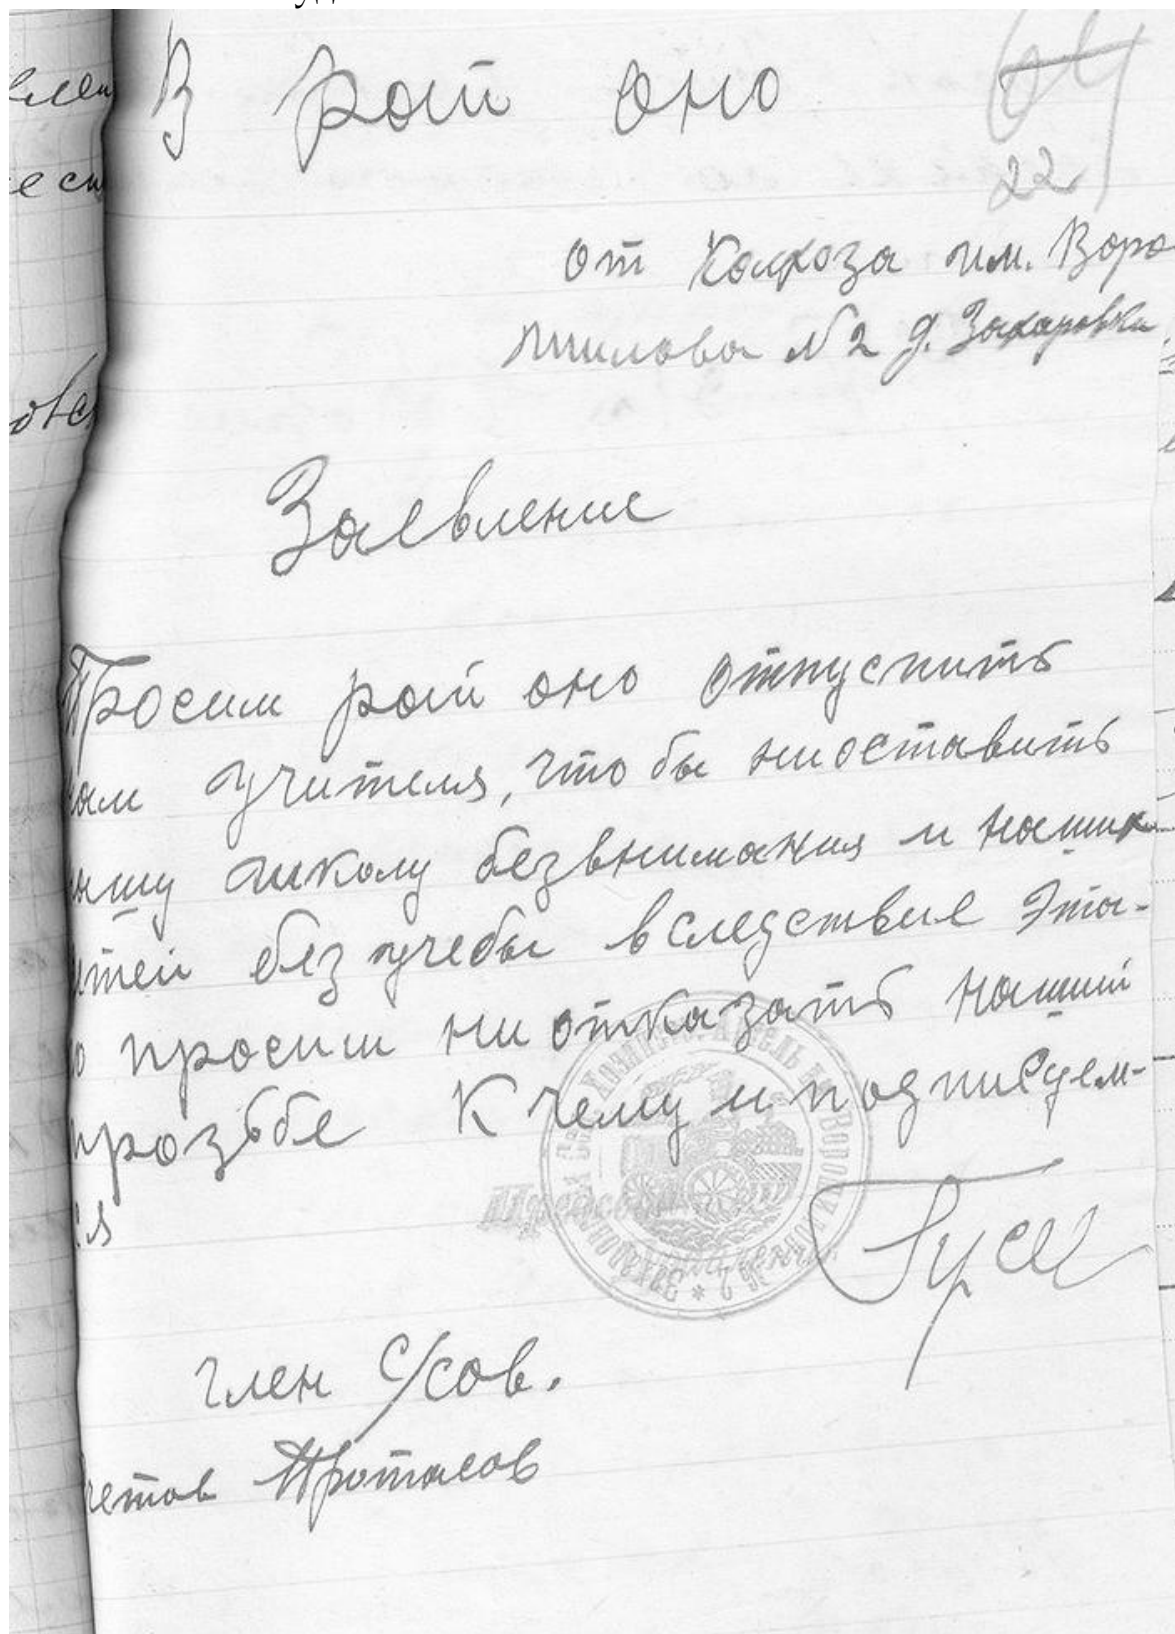 В рай оно
22
от Колхоза им. Воро
шилова №2 д. Захаровка
Заевление
Просим рай оно отпустить
нам учителя, что бы ниоставить
нашу школу безвнимания и наших
детей без учебы вследствие Эта-
го просим ни отказать наший
прозьбе К чему и подписуем-
ся
Член С/сов.
Протасов